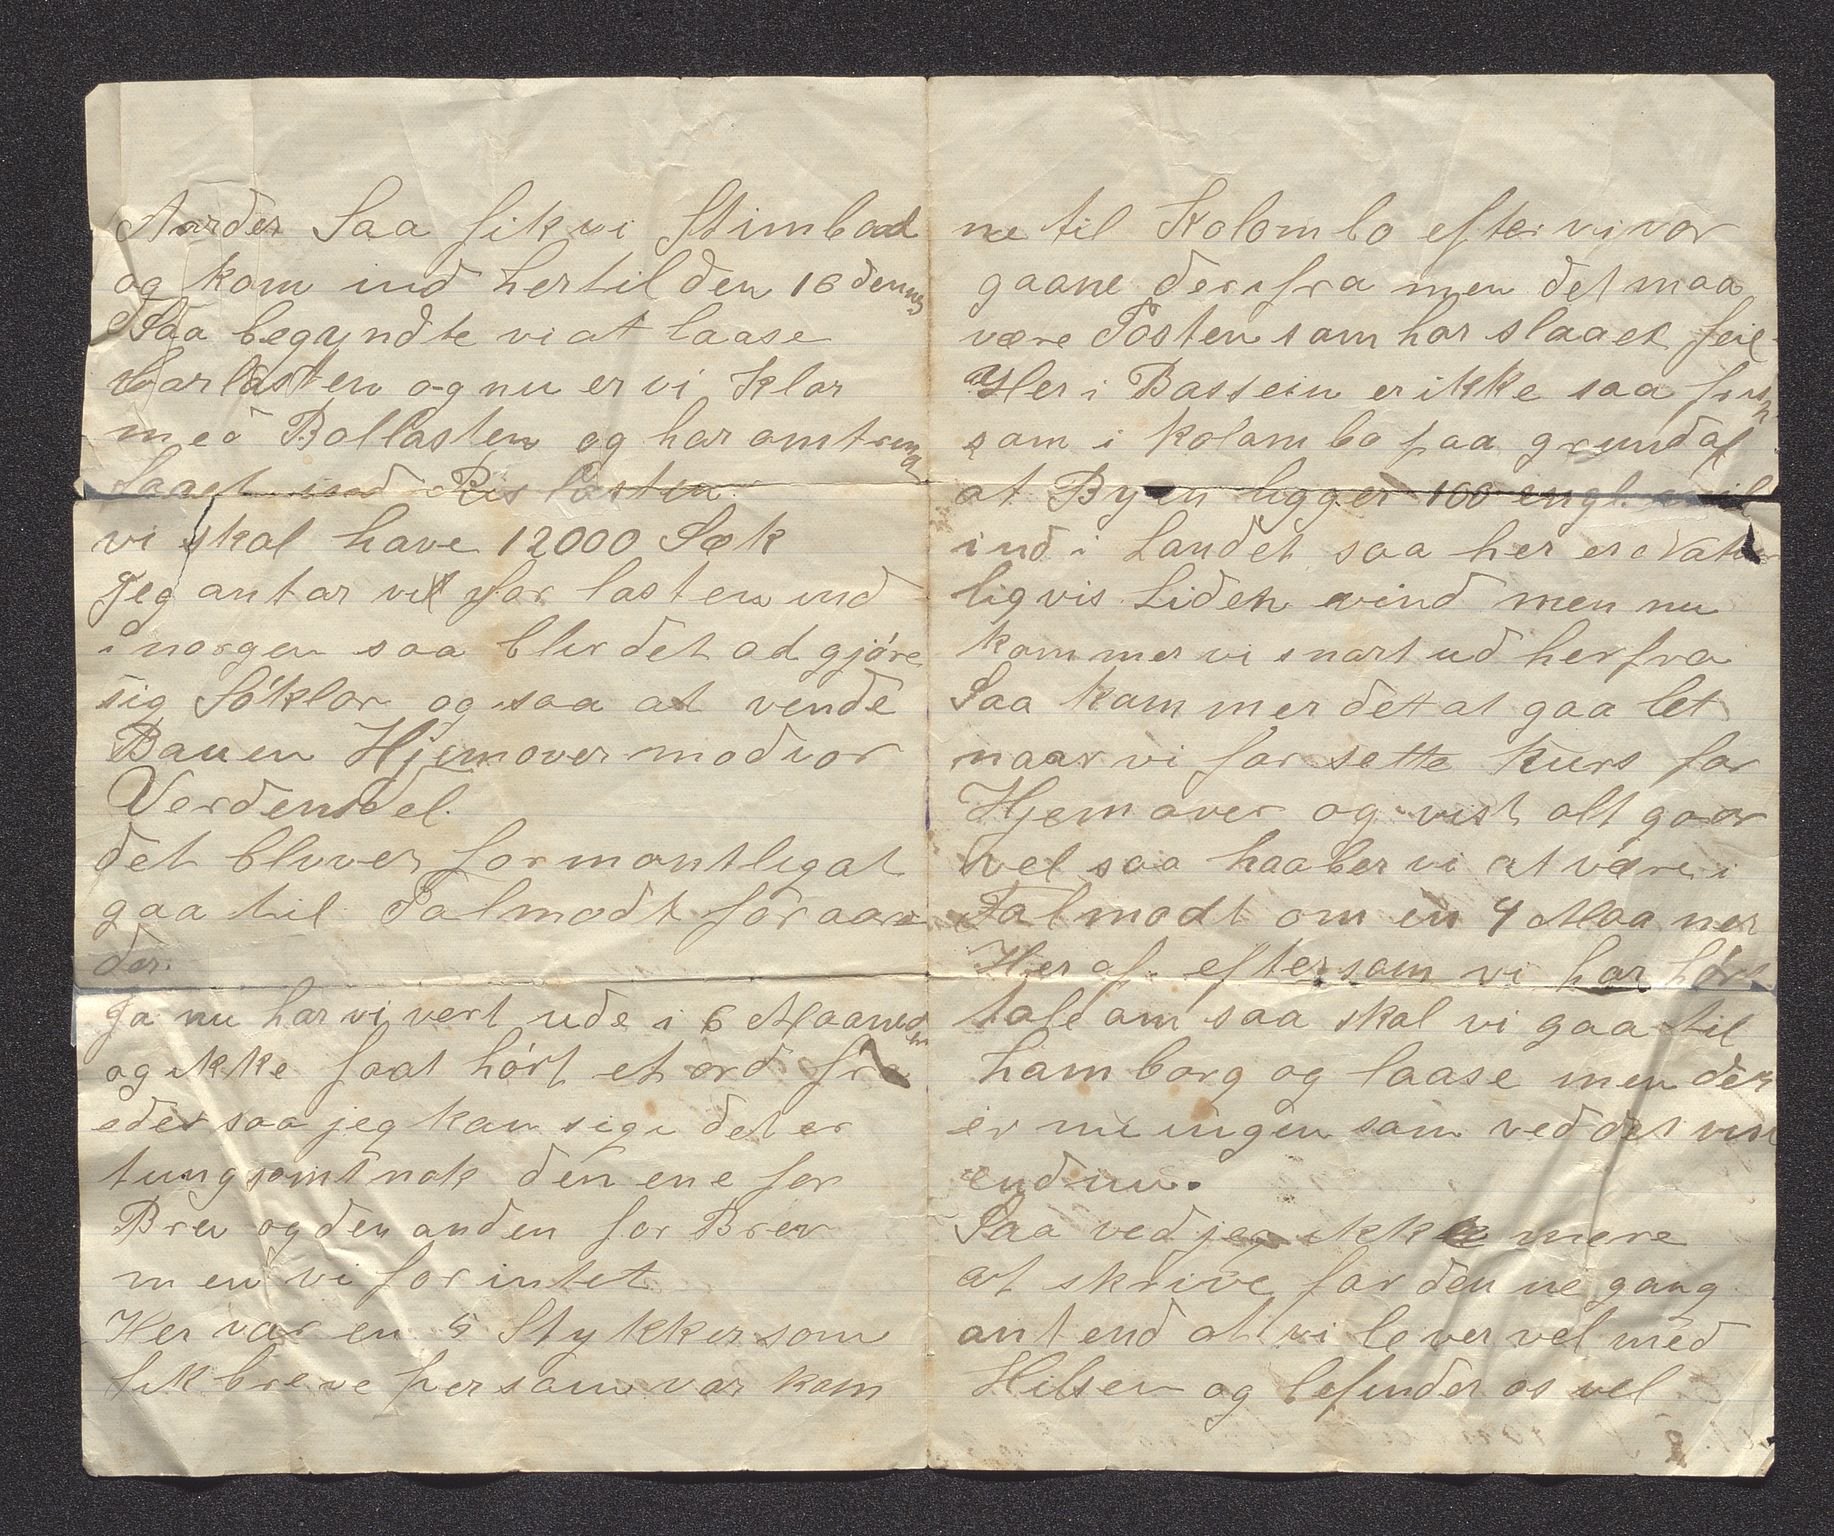 Aarder Saa fik vi Stimbaad
og kom ind hertil den 16 dennes
Saa begyndte vi at laase
barlasten og nu er vi klar
med Bollasten og har omtrent
faaet ind Rislasten
vi skal have 12000 Sæk
Jeg antar vi for lasten ind
i norgen saa blir det ad gjøre
sig Søklar og saa at vende
Bauen Hjemover mod vor
Verdensdel.
det bliver formontligat
gaa til Falmodt for aar
der.
Ja nu har vi vert ude i 6 Maaneder
og ikke faat hørt et ord fra
eder saa jeg kan sige det er
tungsomt nok den ene for
Brev og den anden for Brev
men vi for intet
Her var en 5 Stykker som
fik breve her som var kom
ne til Kolombo efter vi var
gaane derifra men det maa
være Posten som har slaaet feil
Her i Bassein er ikke saa frisk
som i Kolombo paa grund af
at Byen ligger 100 engl. mil
ind i Landet saa her er Natur
ligvis Liden vind men nu
kommer vi snart ud herfra
Saa kommer det at gaa let
naar vi for sette kurs for
Hjemover og vist alt gaar
vel saa haaber vi at være i
Falmodt om en 4 Maaner
Heraf. eftersom vi har hørt
tale om saa skal vi gaa til
hamborg og laase men der
er nu ingen som ved det vist
endnu.
Saa ved jeg ikke mere
at skrive for denne gang
ant end at vi lever vel med
Hilsen og befinder os vel